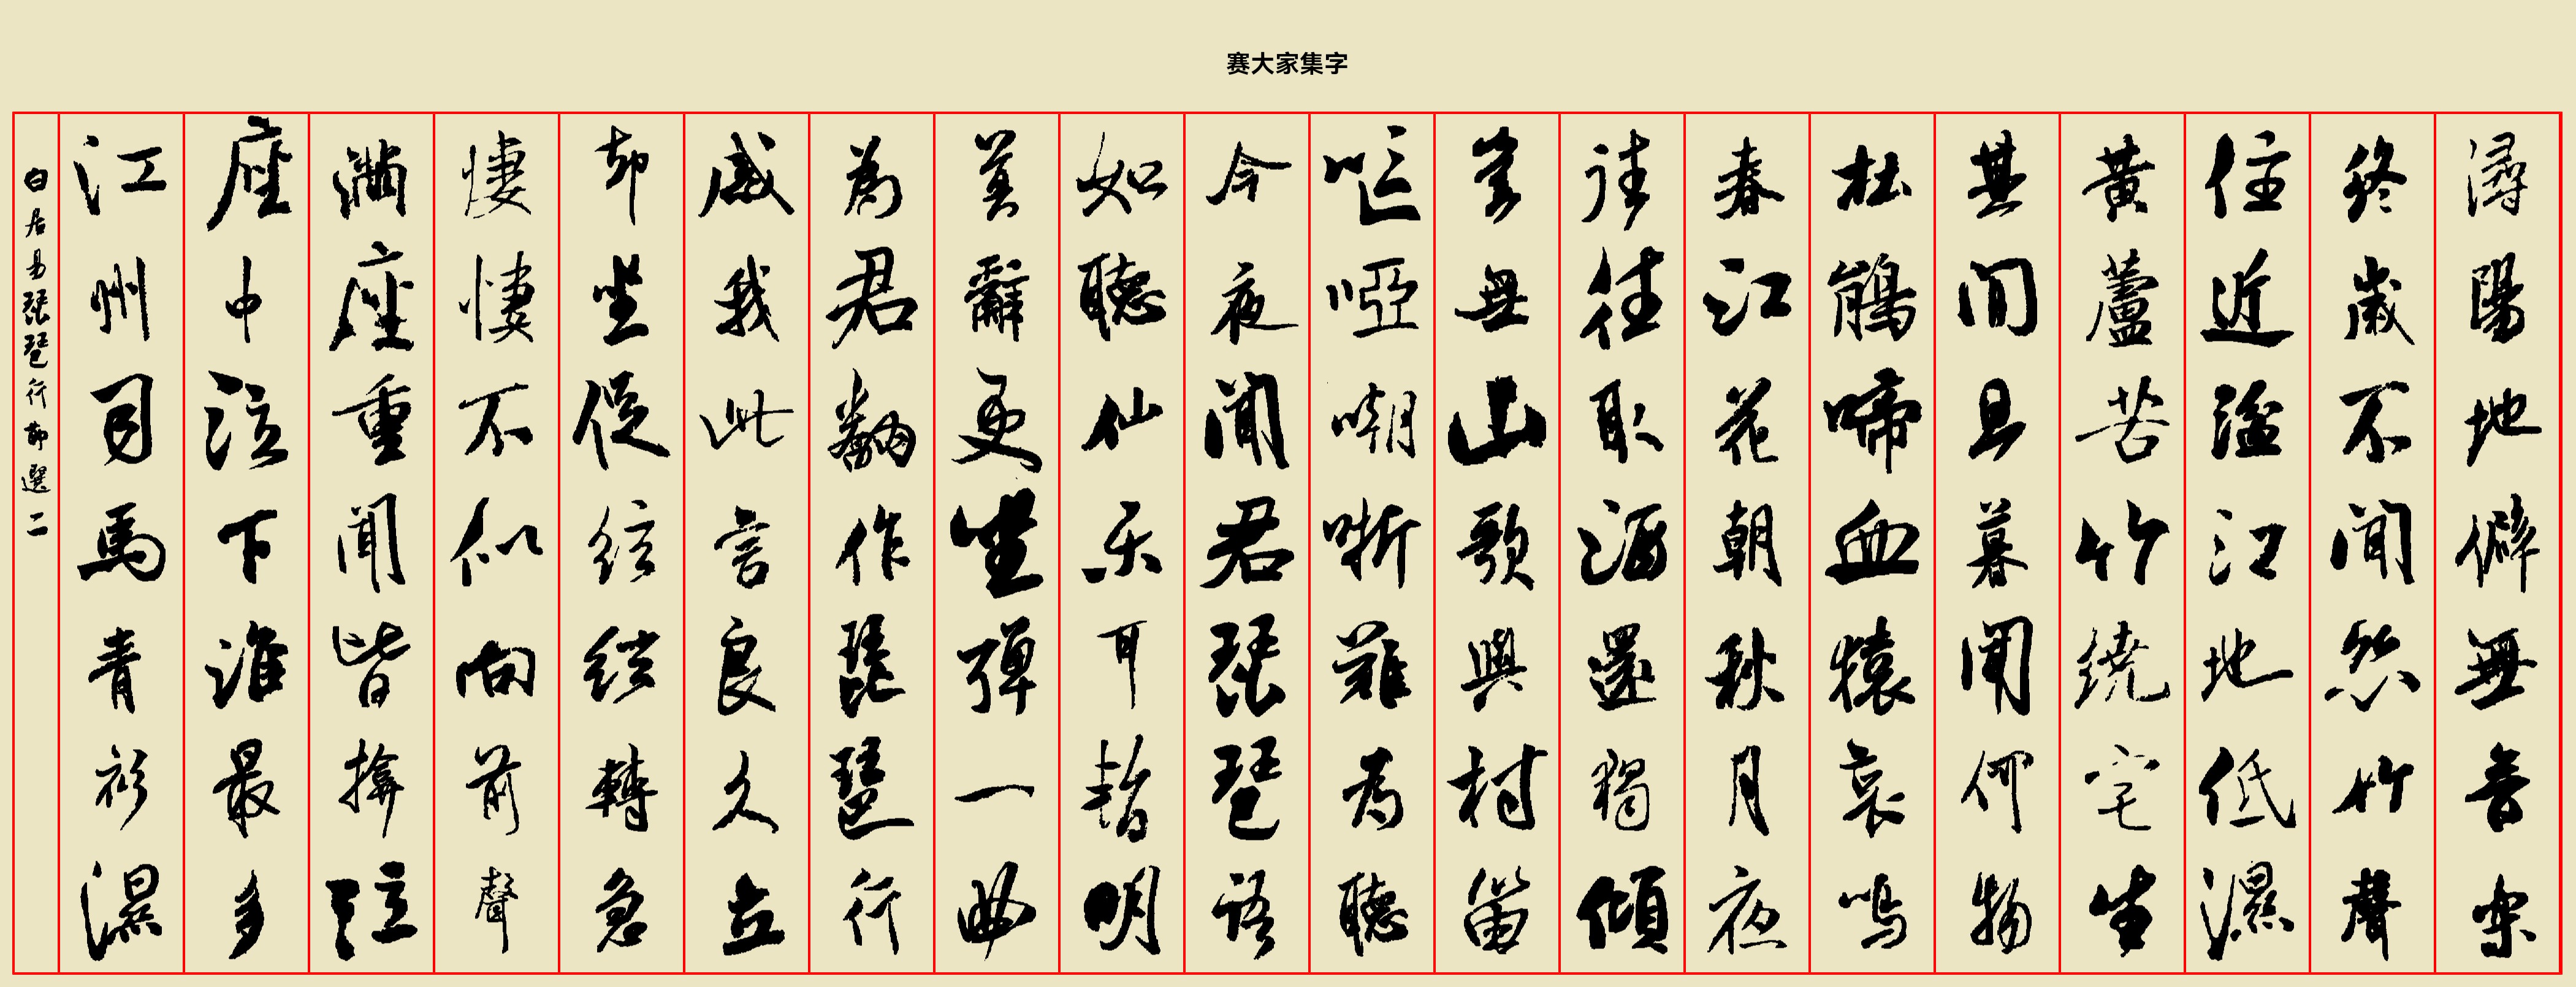 赛大家集字
潯陽地僻無音樂
終歲不聞絲竹聲
住近湓江地低濕
黃蘆苦竹繞宅生
其間旦暮聞何物
杜鵑啼血猿哀鳴
春江花朝秋月夜
往往取酒還獨傾
豈無山歌與村笛
嘔啞嘲哳難為聽
今夜聞君琵琶語
如聽仙乐耳暫明
莫辭更坐彈一曲
為君翻作琵琶行
感我此言良久立
却坐促絃絃轉急
悽悽不似向前聲
滿座重聞皆揜泣
座中泣下誰最多
江州司馬青衫濕
白居易琵琶行節選二